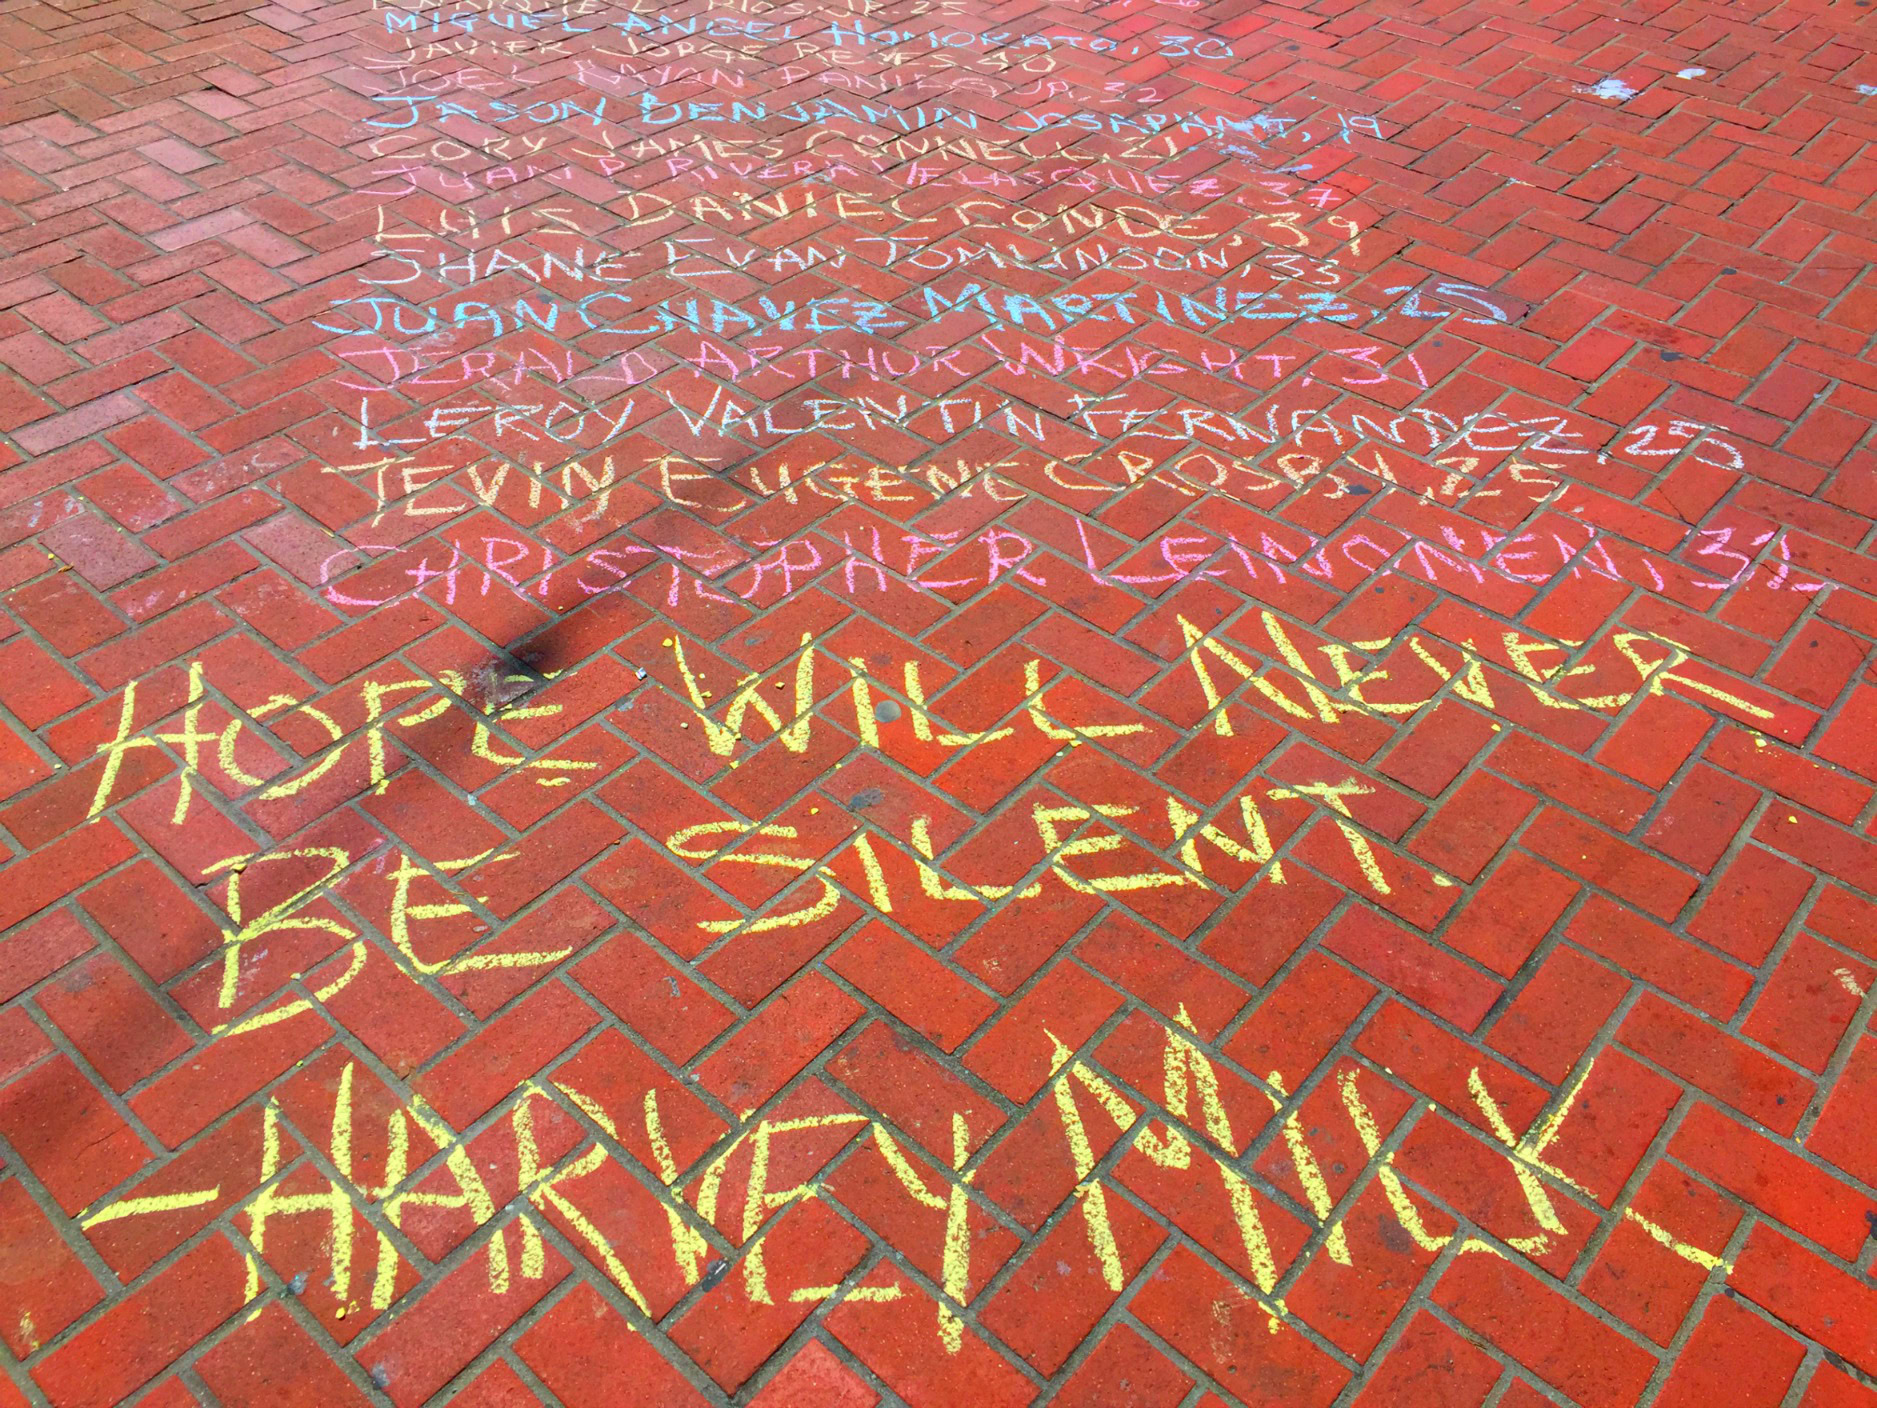 ENRIQUE L. RIOS, JR. 25
MIGUEL ANGEL HONORATO, 30
JAVIER JORGE REYES 40
JOEL RAYON PANIAGUA, 32
JASON BENJAMIN JOSAPHAT, 19
CORY JAMES CONNELL, 21
JUAN P. RIVERA VELASQUEZ, 37
LUIS DANIEL CONDE, 39
SHANE EVAN TOMLINSON, 33
JUAN CHAVEZ MARTINEZ, 25
JERALD ARTHUR WRIGHT, 31
LEROY VALENTIN FERNANDEZ, 25
TEVIN EUGENE CROSBY, 25
CHRISTOPHER LEINONEN, 32
HOPE WILL NEVER
BE SILENT.
-HARVEY MILK-